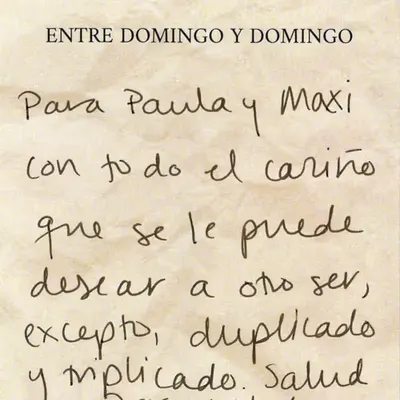 ENTRE DOMINGO Y DOMINGO
Para Paula y Maxi
con todo el cariño
que se le puede
desear a otro ser,
excepto, duplicado
y triplicado. Salud